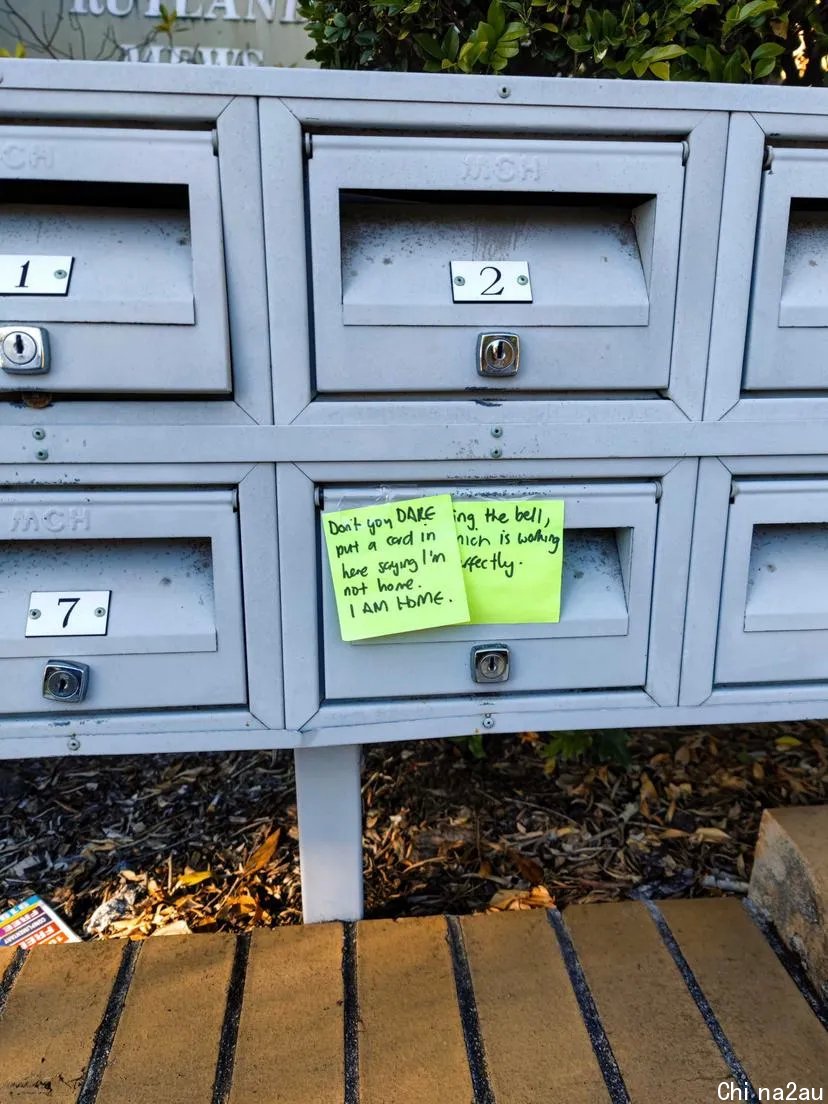 RUTLAND
VIEWS
MCH
MCH
1
2
MCH
7
Don't you DARE
put a card in
here saying I'm
not home.
I AM HOME.
ing the bell,
hich is working
rfectly.
FREE
Chi na2au